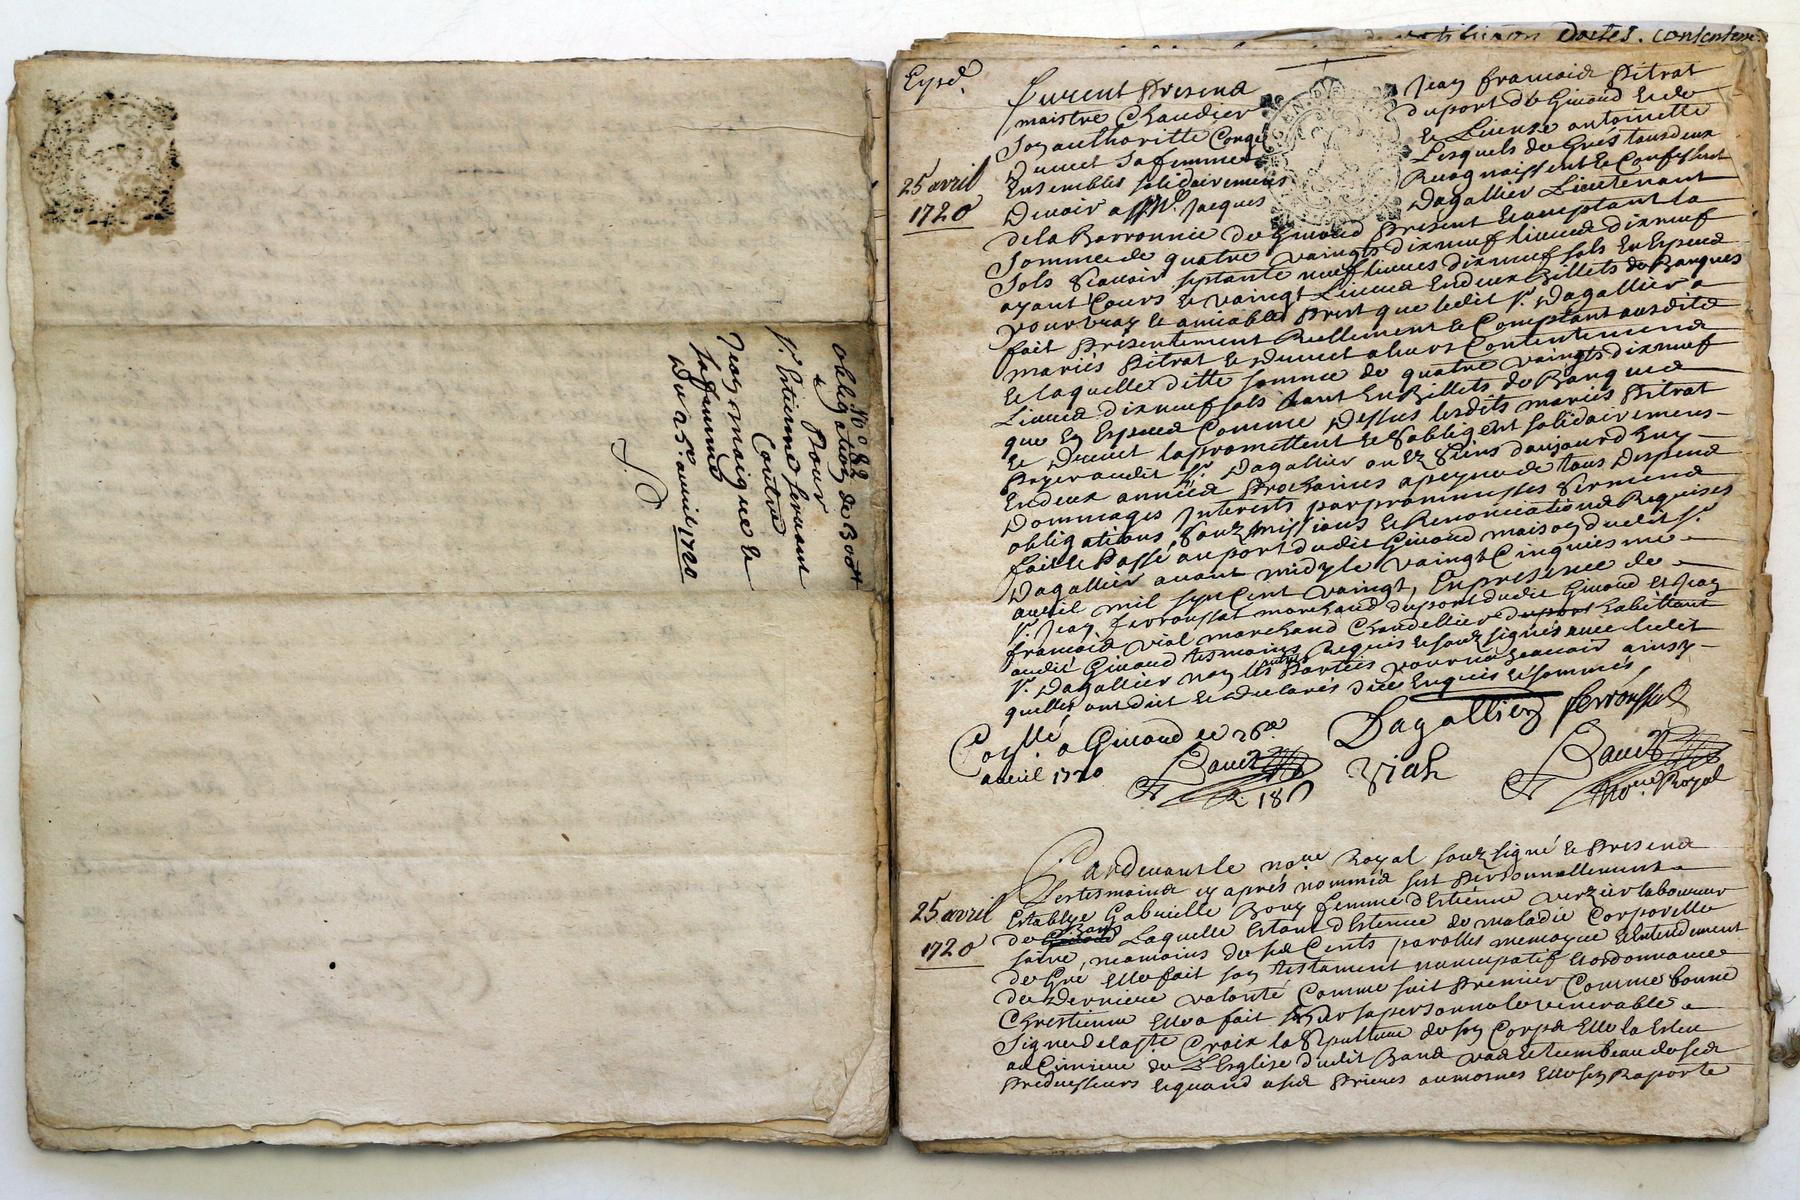 No 82
obligation de 300ᵗᵗ
Pour
sʳ. Estienne servant
Contre
Jean monique et
sa femme
Du 25ᵉ avril 1720
Expéᵉ.
25 avril
1720
furent Presens Jean francois Pitrat
maistre Chandier du port de Givord et de
son authoritte Congé et License antoinette
Ducret sa femme Lesquels de Grés tous deux
Ensembles solidairemens Recognoissent et Confessent
Devoir a Jacques Dagallier Lieutenant
de la Barronnie de Givord Present et acceptant la
somme de quatre vaingts dixneuf livres dixneuf
sols scavoir septante neuf livres dixneuf sols En Especes
ayant Cours et vaingt Livres En deux Billets de Banques
pour vray et amiable Prest que ledit sʳ. Dagallier a
fait Presentement Reellement et Comptant ausdits
mariés Pitrat et Ducret a leurs Contentemens
et laquelle ditte somme de quatre vaingts dixneuf
Livres dixneuf sols tant En Billets de Banque
que En Especes Comme Dessus lesdits mariés Pitrat
et Ducret la promettent et s'obligent solidairemens
Payer audit sʳ. Dagallier ou Ez siens d'aujourd'huy
En deux années Prochaines a peyne de tous Despens
Dommages Interests par prommesses sermens
obligations, soubzmissions et Renonciations Requises
fait et Passé au port dudit Givord maison dudit sʳ.
Dagallier avant midy le vaingt Cinquiesme
avril mil sept Cent vaingt, En presence de
sʳ. Jean ferroussat marchand du port dudit Givord et Jean
francois vial marchand Chandellier habittant
audit Givord tesmoins Requis et soubzsignés avec ledit
sʳ. Dagallier non les autres Parties pour ne scavoir ainsy
quelles ont dit et declarés de ce Enquis et sommés
Dagallier ferroussat
Coʳˡˡé a Givord le 26ᵉ
avril 1720
vial
R 18ˢ
noʳᵉ Royal
25 avril
1720
Pardevant le noʳᵉ Royal soubzsigné et Presens
Les tesmoins cy aprés nommés fut Personnellement
Establye Gabrielle Bouy femme d'Estienne verzier laboureur
de Bans Laquelle Estant d'Estenue de maladie Corporelle
saine, neamoins de ses Cents, parolles memoyre et Entendement
de Gré Elle fait son testament nuncupatif et ordonnance
de Derniere volonté Comme suit Premier Comme bonne
Chrestienne Elle a fait sur sa personne le venerable
signe de la sᵗᵉ Croix la sepulture de son Corps Elle la Esleu
au Cimiere de L'Eglise dudit Bans vas et tumbeau de ses
Predecesseurs et quand a ses Prieres aumosnes Elle s'en Raporte